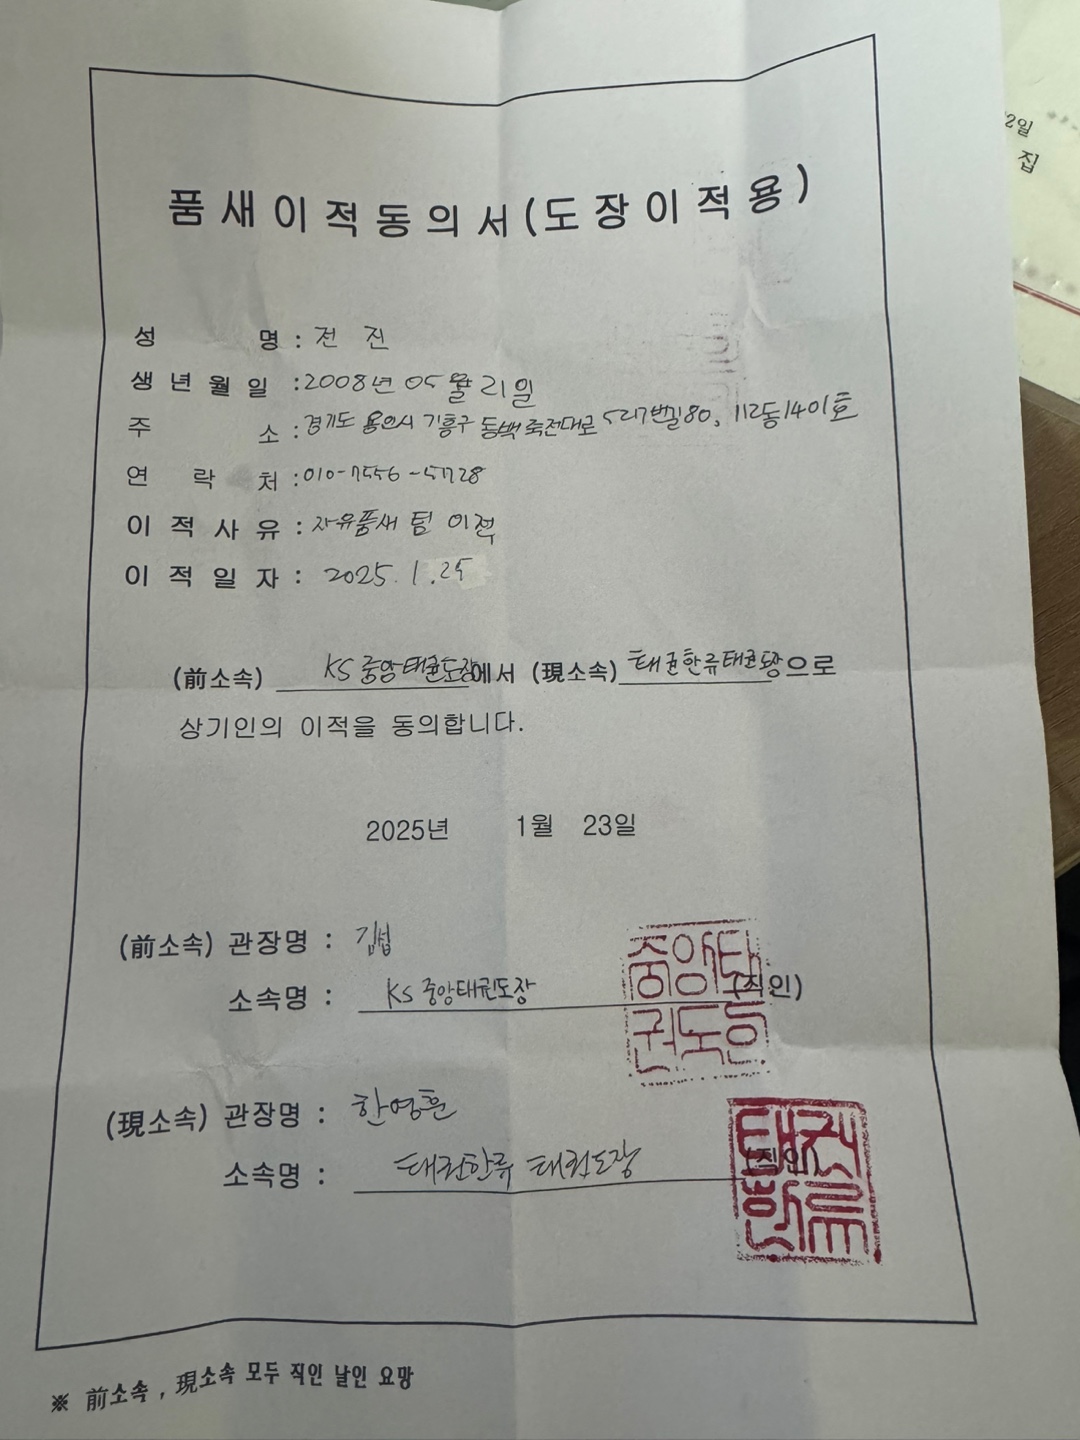 2일
집
품새이적동의서(도장이적용)
성 명 : 전 진
생년월일 : 2008년 05월 21일
주 소 : 경기도 용인시 기흥구 동백죽전대로 527번길80, 112동1401호
연 락 처 : 010-7556-5728
이적사유 : 자유품새 팀 이적
이적일자 : 2025. 1. 25
(前소속) KS 중앙태권도장에서 (現소속) 태권한류태권도장으로
상기인의 이적을 동의합니다.
2025년 1월 23일
(前소속) 관장명 : 김섭
소속명 : KS 중앙태권도장 (직인)
중앙태
권도
(現소속) 관장명 : 한영훈
소속명 : 태권한류 태권도장 (직인)
태권
한류
※ 前소속 , 現소속 모두 직인 날인 요망